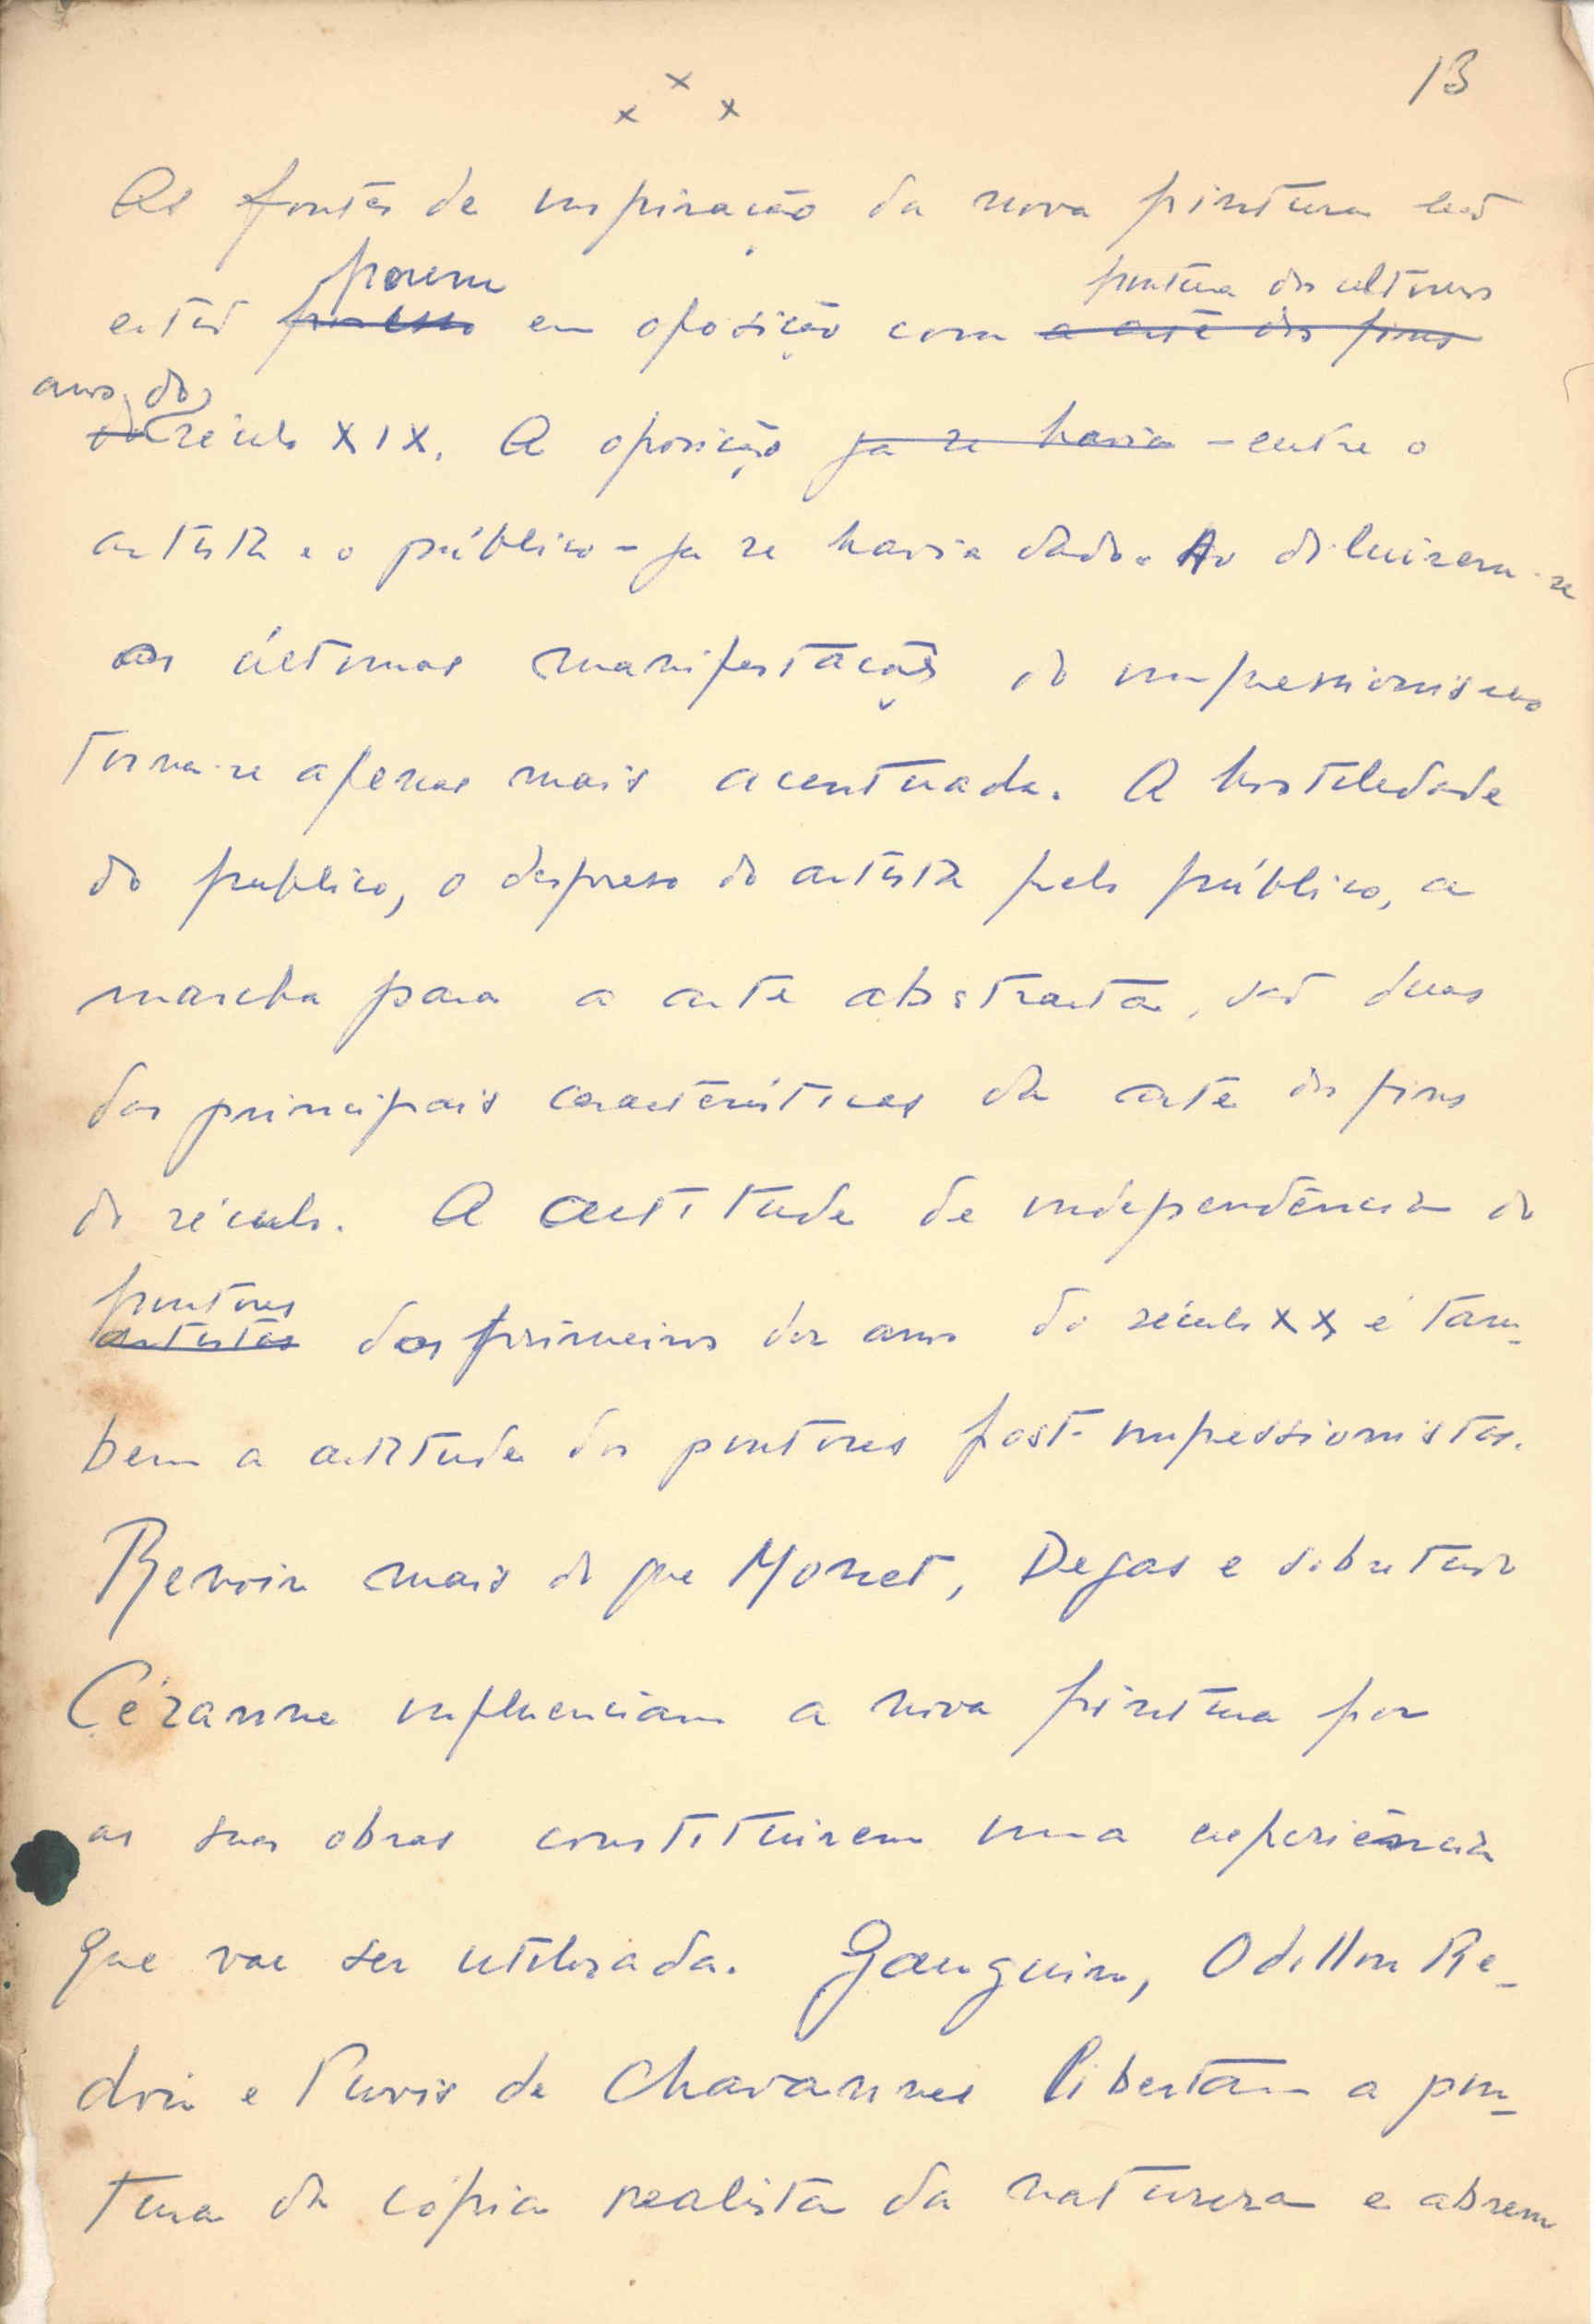 13
x x x
As fontes de inspiração da nova pintura não
porem pintura dos ultimos
estão por isso em oposição com a arte dos fins
anos do
do século XIX. A oposição ja se havia - entre o
artista e o público - ja se havia dado. Ao diluirem-se
as últimas manifestações do impressionismo
torna-se apenas mais acentuada. A hostilidade
do publico, o despreso do artista pelo público, a
marcha para a arte abstracta, são duas
das principais características da arte dos fins
do século. A actitude de independência do
pintores
artistas dos primeiros dez anos do século XX, é tam-
bem a actitude dos pintores post-impressionistas.
Renoir mais do que Monet, Degas e sobretudo
Cézanne influenciam a nova pintura por
as suas obras constituirem uma experiência
que vae ser utilizada. Gauguin, Odillon Re-
don e Puvis de Chavannes libertam a pin-
tura da cópia realista da natureza e abrem